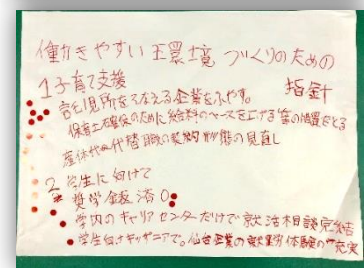 働きやすい環境づくりのための
指針
1 子育て支援
託児所をそなえる企業をふやす。
保育士確保のために給料のベースを上げる等の措置をとる
産休代替職の契約形態の見直し
2 学生に向けて
奨学金返済0
学内のキャリアセンターだけで就活相談完結
学生向けキッザニアで。仙台企業の就業労体験の充実